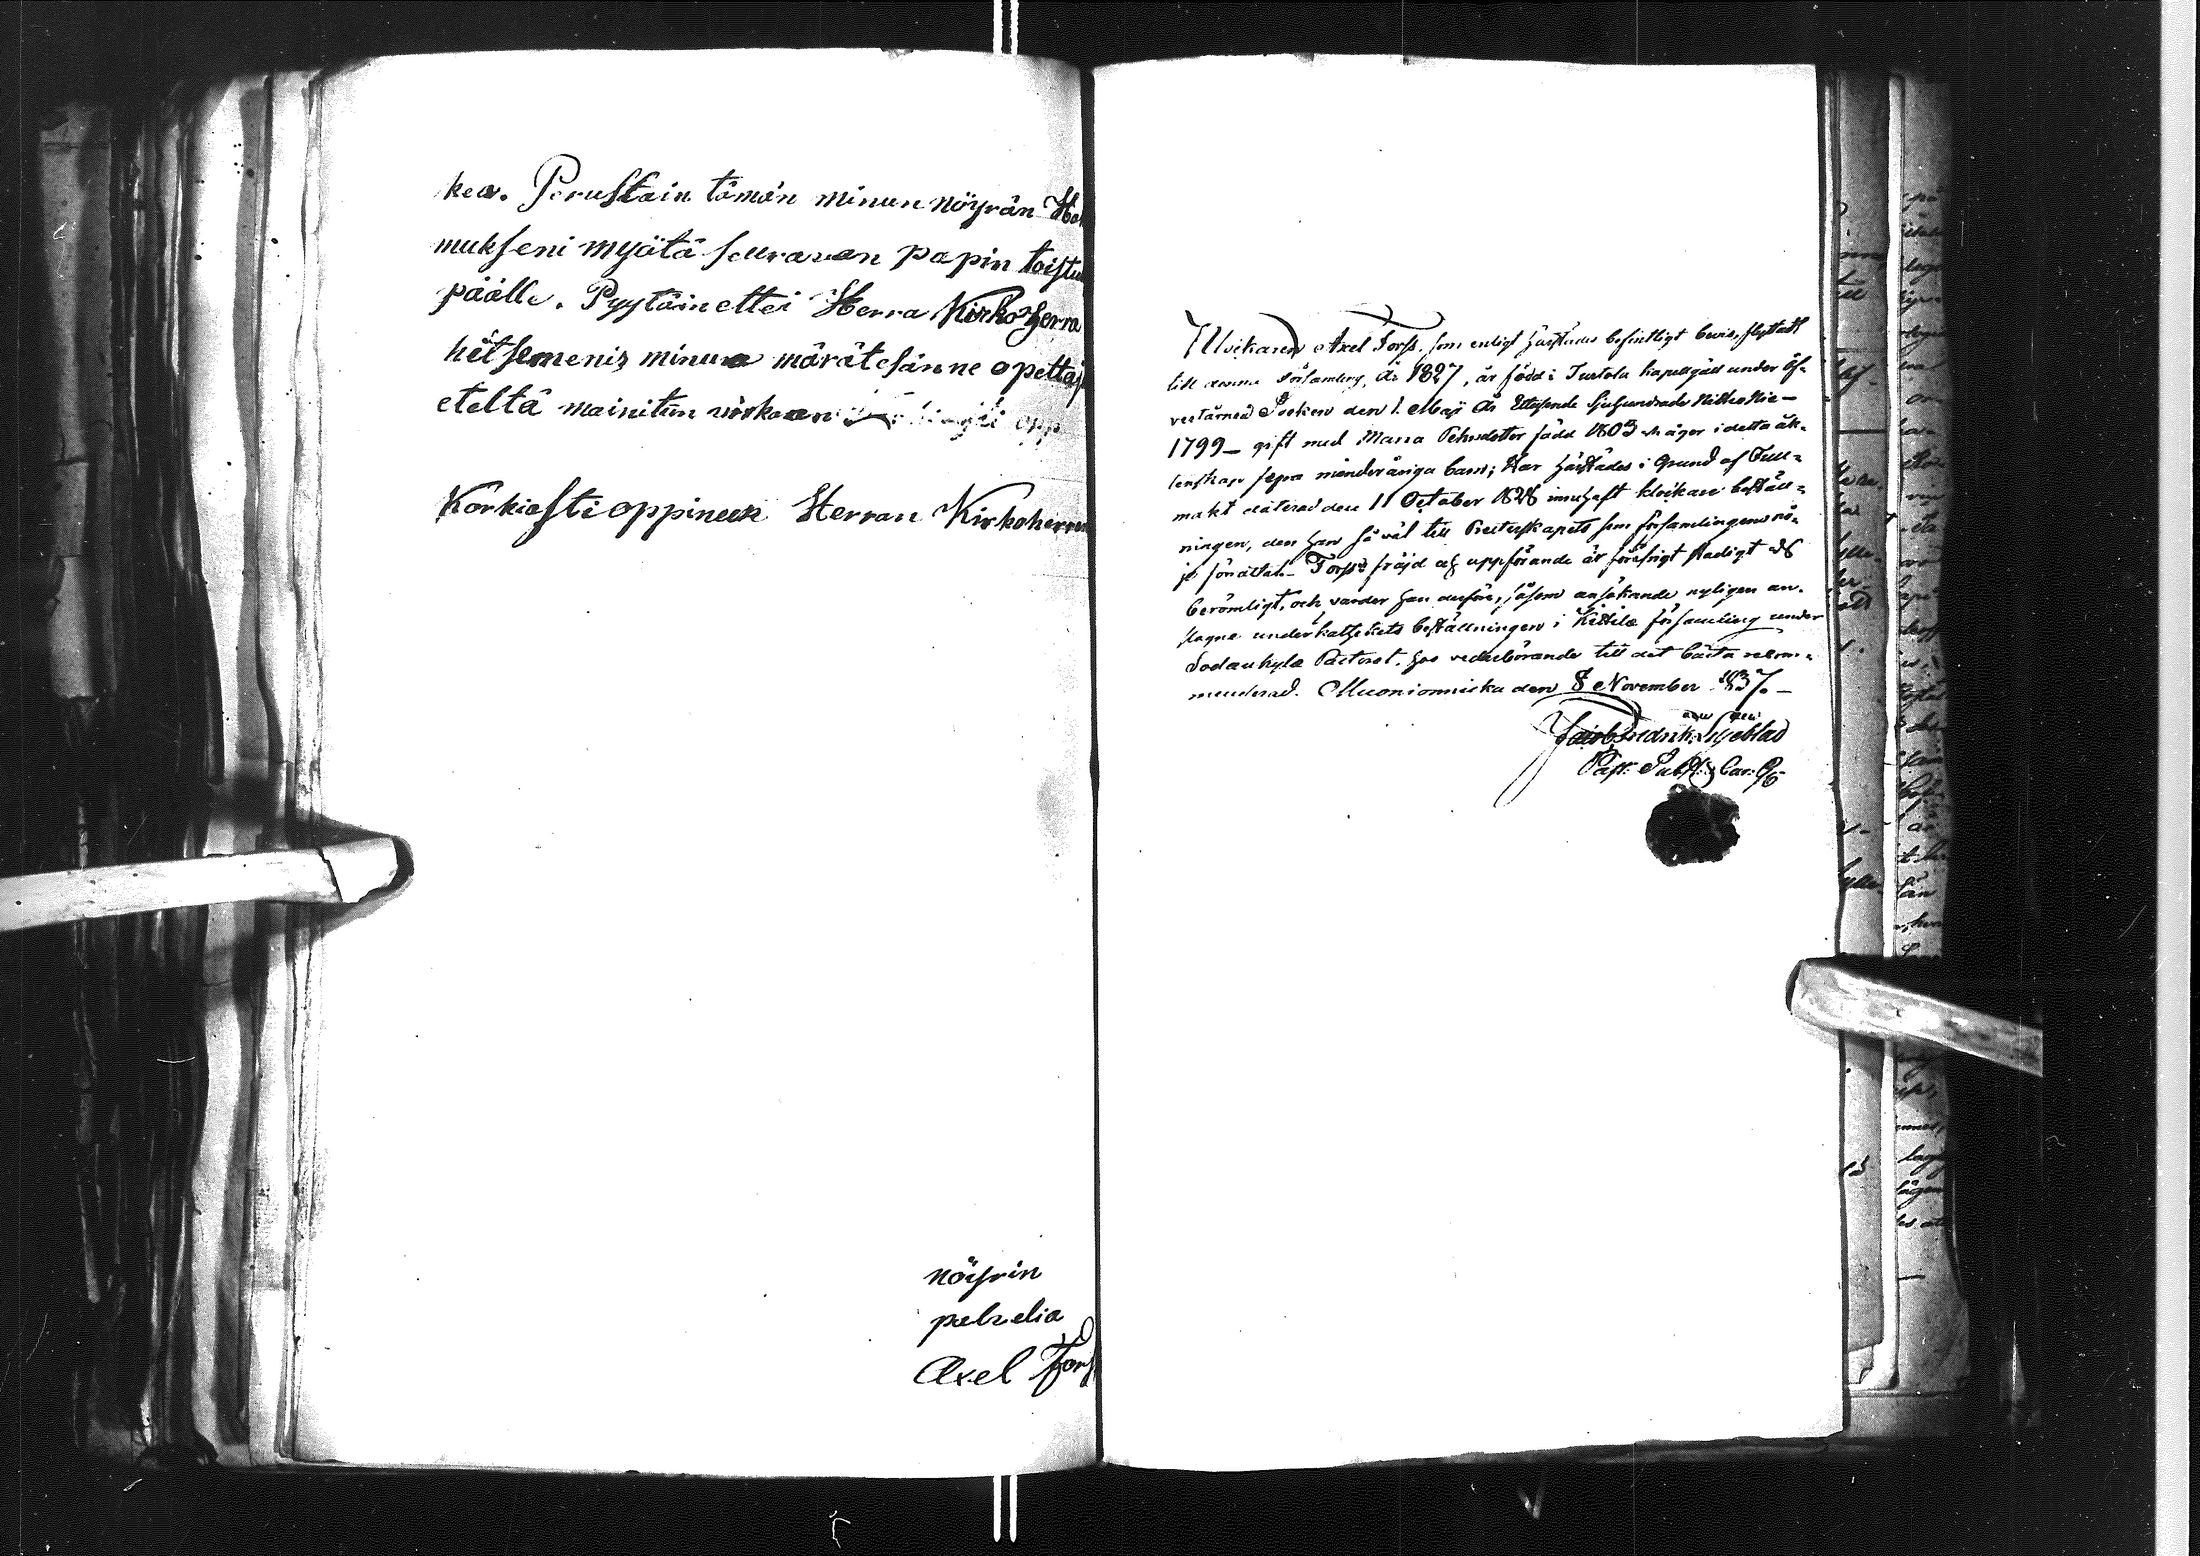 kea. Perustain tämän minun nöyrän
mukseni myötä seuravan papin
päälle. Pyytäin ettei Herra Kirkoherra
hätsemenis minua märätesänne
eteltä mainitun virkaan
Korkiasti oppineen Herran Kirkoherran
nöyrin
palvelia
Axel Forss
Klockaren Axel Forss, som enligt härstädes befintligt bevis, flyttat
till denna Församling, År 1827, är född i Turtola kapellgäll under Öf-
vertårneå Socken den 1. Maji År Ettusende Sjuhundrade Nittio Nie –
1799 – gift med Maria Pehrsdotter född 1803 och äger i detta äk-
tenskap sexa minderåriga barn; Har härstädes i Grund af Full-
makt daterad den 11 October 1828 innehaft klockare beställ-
ningen, den han så väl till Presterskapets som församlingens nö-
je förättat. – Forss's fräjd och uppförande är för öfrigt stadigt och
berömligt, och varder han derföre, såsom ansökande nyligen an-
slagne underkathekets beställningen i Kittilä församling under
Sodankylä Pastorat, hos vederbörande till det bästa recom-
menderad. Muonionniska den 8 November 1837. –
Fredrik
Past: